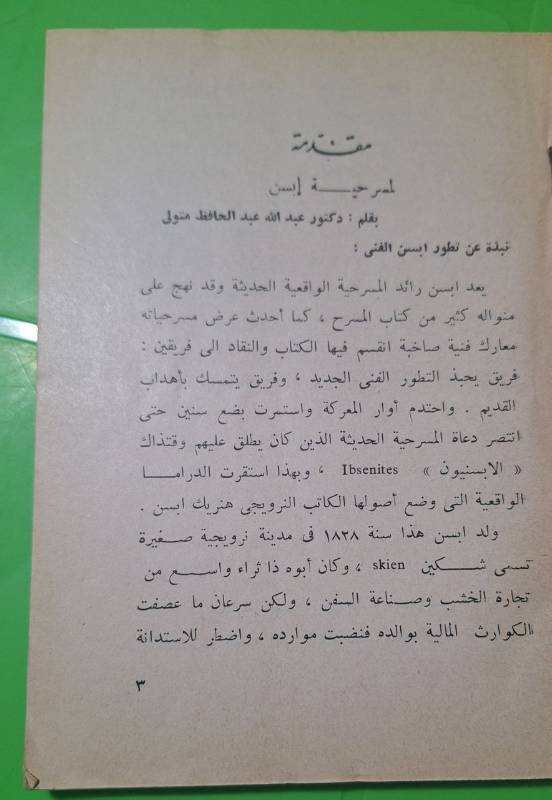 مقدمة
لمسرحيـــة إبسن
بقلم : دكتور عبد الله عبد الحافظ متولى
نبذة عن تطور ابسن الفنى :
يعد ابسن رائد المسرحية الواقعية الحديثة وقد نهج على
منواله كثير من كتاب المسرح ، كما أحدث عرض مسرحياته
معارك فنية صاخبة انقسم فيها الكتاب والنقاد الى فريقين :
فريق يحبذ التطور الفنى الجديد ، وفريق يتمسك بأهداب
القديم . واحتدم أوار المعركة واستمرت بضع سنين حتى
انتصر دعاة المسرحية الحديثة الذين كان يطلق عليهم وقتذاك
« الابسنيون » Ibsenites ، وبهذا استقرت الدرامـا
الواقعية التى وضع أصولها الكاتب النرويجى هنريك ابسن .
ولد ابسن هذا سنة ١٨٢٨ فى مدينة نرويجية صـغيرة
تسمى شـــكين skien ، وكان أبوه ذا ثراء واســـع من
تجارة الخشب وصـناعة السفن ، ولكن سرعان ما عصفت
الكوارث المالية بوالده فنضبت موارده ، واضطر للاستدانة
٣